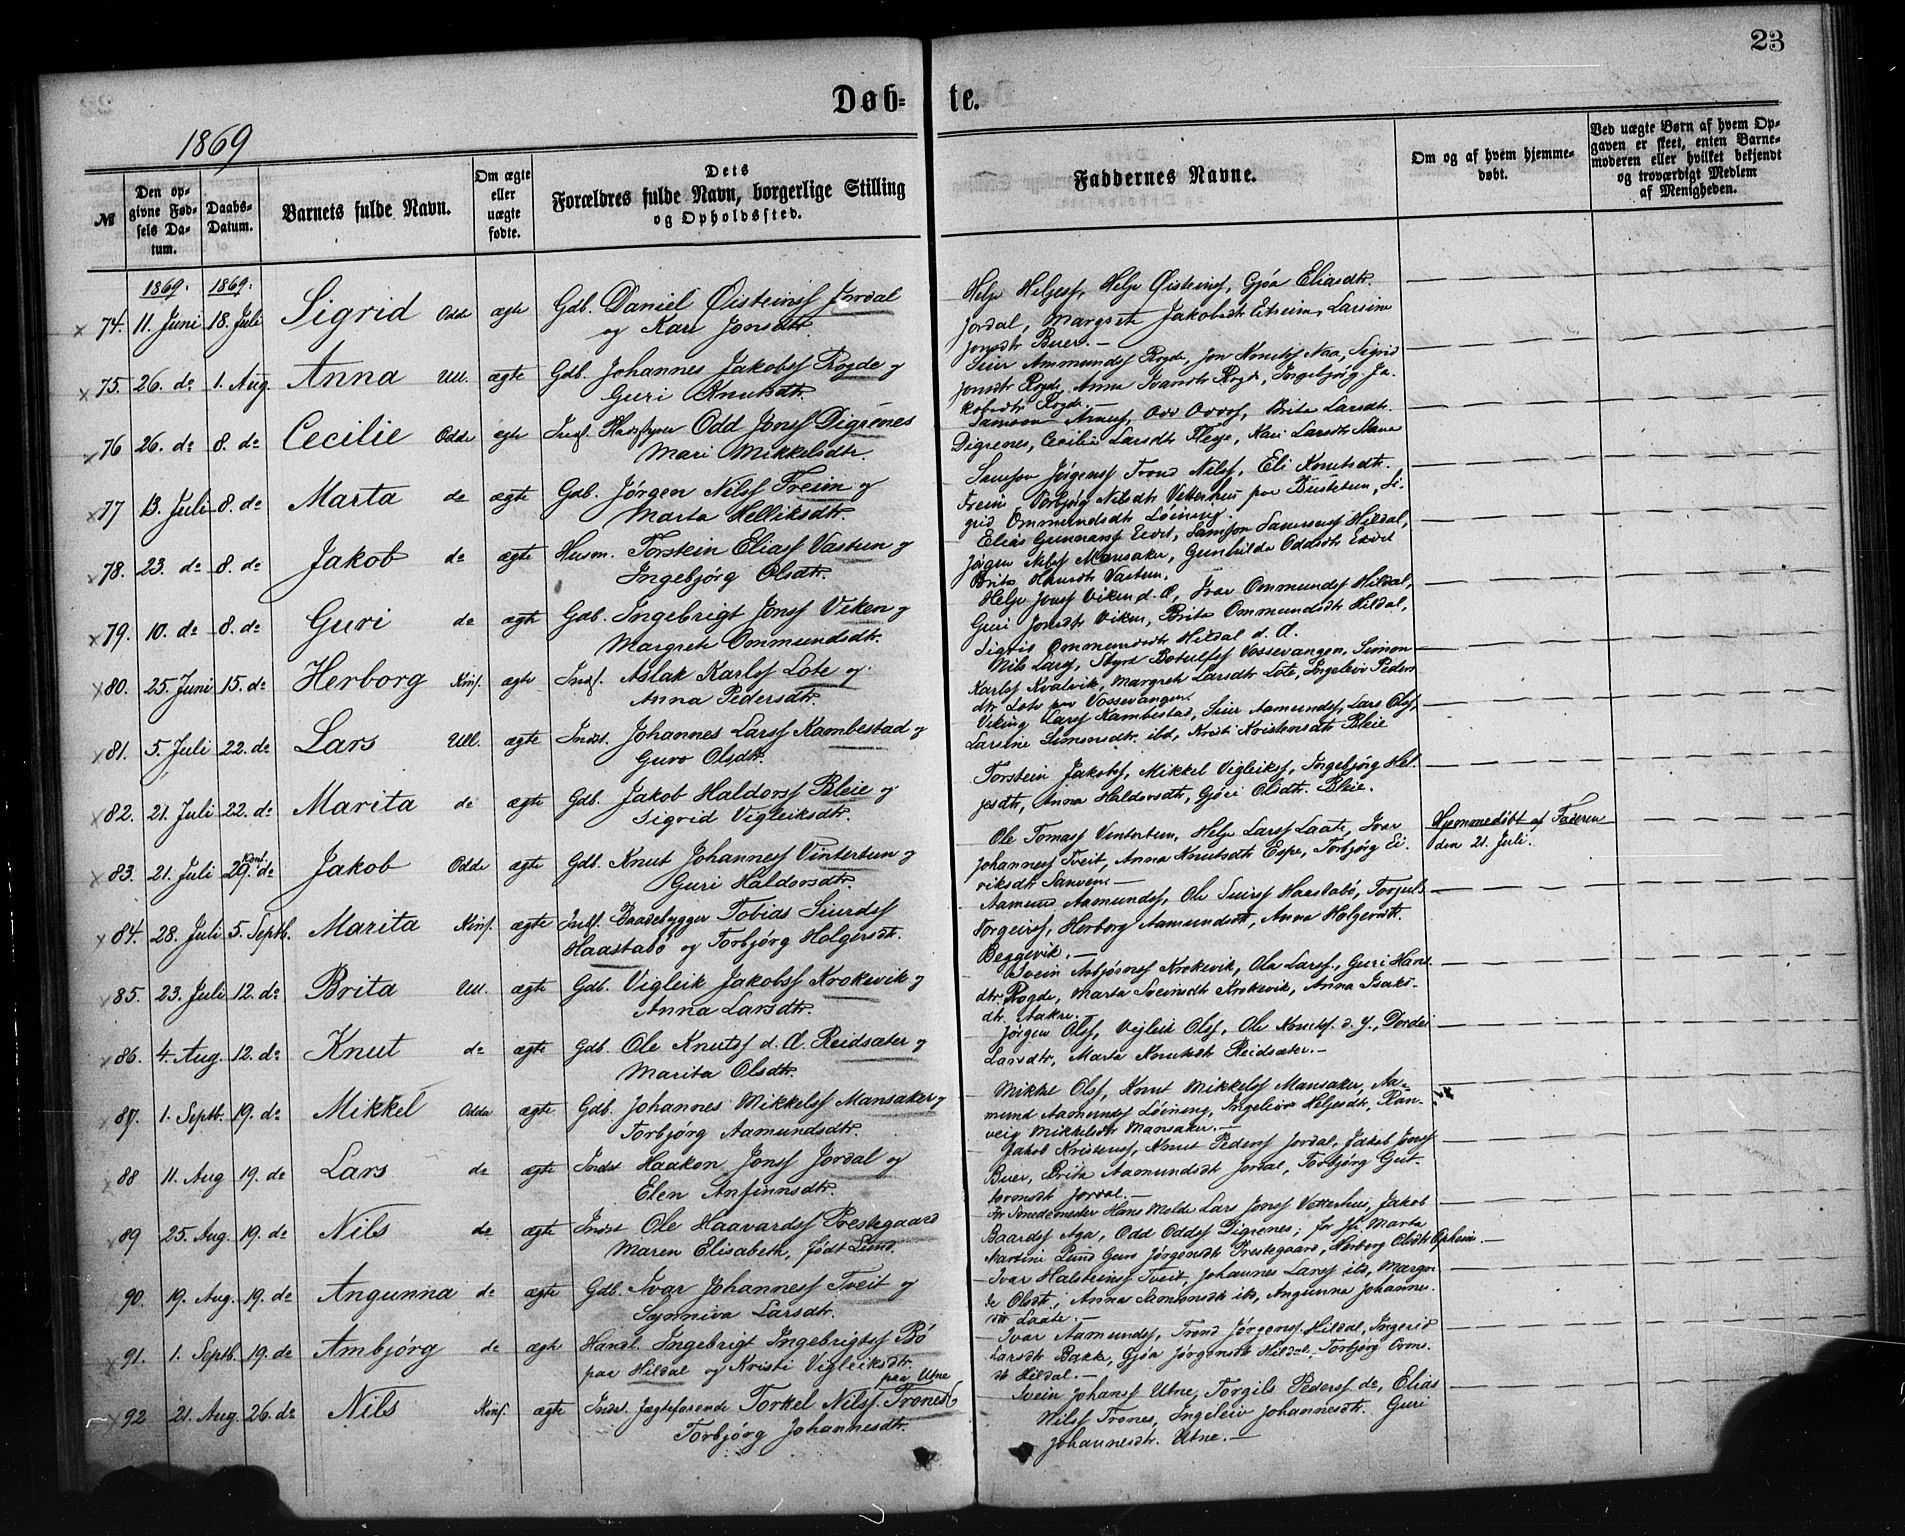 23
Døb-
te.
1869
№
Den op-
givne Fød-
sels Da-
tum.
Daabs-
Datum.
Barnets fulde Navn.
Om ægte
eller
uægte
fødte.
Dets
Forældres fulde Navn, borgerlige Stilling
og Opholdssted.
Faddernes Navne.
Om og af hvem hjemme-
døbt.
Ved uægte Børn af hvem Op-
gaven er skeet, enten Barne-
moderen eller hvilket bekjendt
og troværdigt Medlem
af Menigheden.
1869. 1869.
74. 11. Juni 18. Juli Sigrid Odde ægte Gdb. Daniel Øisteinsf Jordal
og Kari Jonsdtr.
Helje Heljesf, Helje Øisteinsf, Gjøa Eliasdtr.
Jordal, Margrete Jakobsdtr Eitreim, Larsine
Jonsdtr Buer. —
75. 26. do 1. Aug. Anna Ull. ægte Gdb. Johannes Jakobsf Rogde og
Guri Knutsdtr.
Siur Ammundsf Rogde, Jon Knutsf Naa, Sigrid
Jonsdtr Rogde, Anna Ivarsdtr Rogde, Ingebjørg Ja-
kobsdtr Rogde. —
76 26. do 8. do Cecilie Odde ægte Indst. Odd Jonsf Digrenes
Mari Mikkelsdtr.
Samson Odd Oddsf, Brita Larsdtr.
Digrenes, Cecilia Larsdtr Kari Larsdtr
77 13. Juli 8. do Marta do ægte Gdb. Jørgen Nilsf Freim og
Marta Helliksdtr.
Samson Jørgensf Trond Nilsf, Eli Knutsdtr.
Freim Torbjørg Nilsdtr Vetterhus paa Bustetun, Si-
grid Ommundsdtr Løining.
78. 23. do 8. do Jakob do ægte Husm. Torstein Eliasf Vastun og
Ingebjørg Olsdtr.
Elias Gunnarsf Samson Samsonsf Hildal,
Jørgen Nilsf Mansaker, Gunhilda Oddsdtr
Brita Hansdtr Vastun.
79. 10. do 8. do Guri do ægte Gdb. Ingebrigt Jonsf Viken og
Margrete Ommundsdtr.
Helje Jonsf Viken d. æ, Ivar Ommundsf Hildal,
Guri Jonsdtr Viken, Brita Ommundsdtr Hildal,
Sigtis Ommundsdtr Hildal d. æ.
80. 25. Juni 15. do Herborg Kinf. ægte Indst. Aslak Karlsf Lote og
Anna Pedersdtr.
Nils Larsf, Styrk Botulfsf Vossevangen, Simon
Karlsf Kvalvik, Margrete Larsdtr Lote, Ingeleiv Peders
dtr Lote paa Vossevangen.
81. 5. Juli 22. do Lars Ull. ægte Indst. Johannes Larsf Kambestad og
Guro Olsdtr.
Viking Larsf Kambestad, Siur Aamundsf, Lars Olsf,
Larsine Simonsdtr. ibd, Kristi Kristensdtr Bleie
82. 21. Juli 22. do Marita do ægte Gdb. Jakob Haldorsf Bleie og
Sigrid Vigleiksdtr.
Torstein Jakobsf, Mikkel Vigleiksf, Ingebjørg Hel-
jesdtr, Anna Haldorsdtr, Gjøri Olsdtr. Bleie.
83. 21. Juli 29. do Jakob Odde ægte Gdb. Knut Johannesf Vintertun og
Guri Haldorsdtr.
Ole Tomasf Vintertun, Helje Larsf Laate, Ivar
Johannesf Tveit, Anna Knutsdtr Espe, Torbjørg Ei-
riksdtr Sanven —
Hjemmedøbt af Faderen
den 21. Juli.
84. 28. Juli 5. Septb. Marita Kinf. ægte Indst. Baadebygger Tobias Siurdsf
Haastabø og Torbjørg Holgersdtr.
Aamund Aamundsf, Ole Siursf Haastabø, Torgils
Torgeirsf, Herborg Aamundsdtr, Anna Holgersdtr.
Beggevik. —
85. 23. Juli 12. do Brita Ull. ægte Gdb. Vigleik Jakobsf Krokevik og
Anna Larsdtr.
Svein Asbjørnsf Krokevik, Ola Larsf, Guri Hans
dtr. Rogde, Marta Sveinsdtr Krokevik, Anna Isaks-
dtr. Aakre.
86. 4. Aug. 12. do Knut do ægte Gdb. Ole Knutsf d. æ. Reidsæter og
Marita Olsdtr.
Jørgen Olsf, Vigleik Olsf, Ole Knutsf. d. y., Dordei
Larsdtr, Marta Knutsdtr Reidsæter. —
87. 1. Septb. 19. do Mikkel Odda ægte Gdb. Johannes Mikkelsf Mansaker og
Torbjørg Aamundsdtr.
Mikkel Olsf, Knut Mikkelsf Mansaker, Aa-
mund Aamundsf Løining, Ingeleiv Heljesdtr, Ran-
veig Mikkelsdtr Mansaker. —
88 11. Aug 19. do Lars do ægte Indst Haakon Jonsf Jordal og
Elen Anfinnsdtr.
Jakob Kristensf, Knut Pedersf Jordal, Jakob Jonsf
Buer, Brita Aamundsdtr Jordal, Torbjørg Gut-
tormsdtr Jordal. —
89 25. Aug. 19. do Nils do ægte Indst Ole Haavardsf Prestegaard
Maren Elisabeth, født Lund.
Hr Smedemester Hans Melde Lars Jonsf Vetterhus, Jakob
Baardsf Aga, Odd Oddsf Digrenes; Marta
Martine Lund Guro Jørgensdtr Prestegaard, Herborg Olsdtr Opheim. —
90. 19. Aug. 19. do Angunna do ægte Gdb. Ivar Johannesf Tveit og
Synneva Larsdtr.
Ivar Halsteinsf Tveit, Johannes Larsf ib, Margre
te Olsdtr, Anna Samsonsdtr ib, Angunna Johannes
dtr Laate. —
91. 1. Septb. 19. do Ambjørg do ægte Handl. Ingebrigt Ingebrigtsf Bø
paa Hildal og Kristi Vigleiksdtr.
Ivar Aamundsf, Trond Jørgensf Hildal, Ingerid
Larsdtr Bakke, Gjøa Jørgensdtr Hildal, Torbjørg Orms-
dtr Hildal. —
92 21. Aug. 26. do Nils Kinf. ægte Indst. Jægtefarende Torkel Nilsf. Trones paa Utne
Torbjørg Johannesdtr.
Svein Johansf Utne, Torgils Pedersf do, Elias
Nilsf Trones, Ingeleiv Johannesdtr. Guri
Johannesdtr. Utne. —